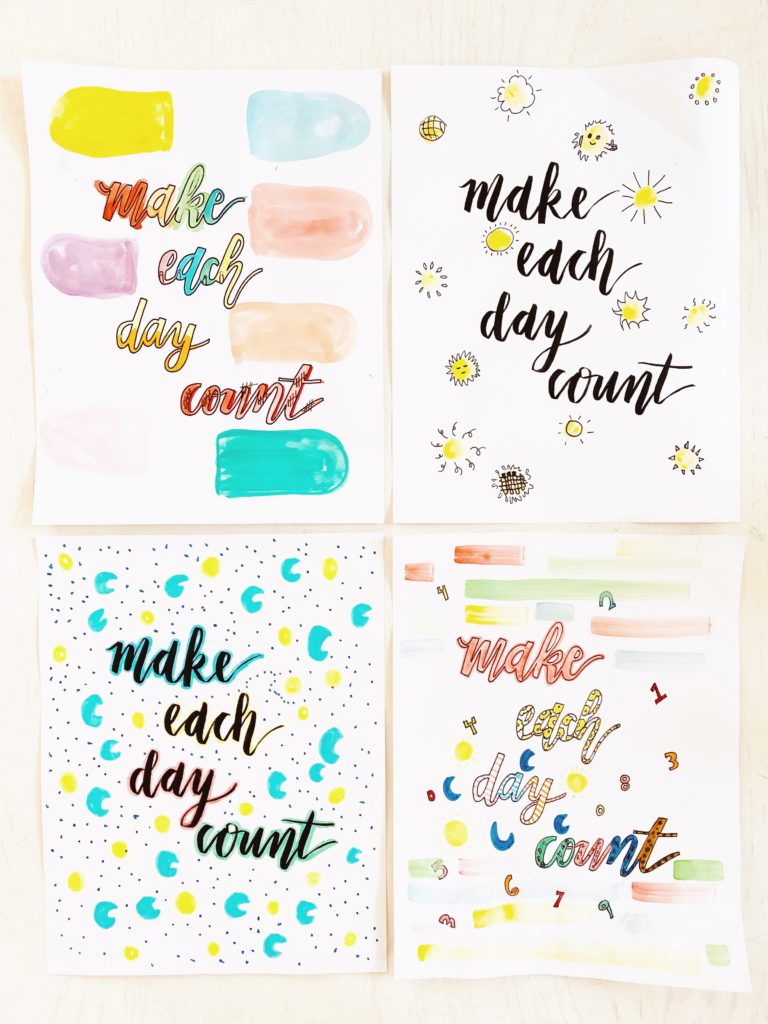 make
each
day
count
make
each
day
count
make
each
day
count
4 2
make
1
4 each
3
day 8
0 0
count
5
6
7 9
3